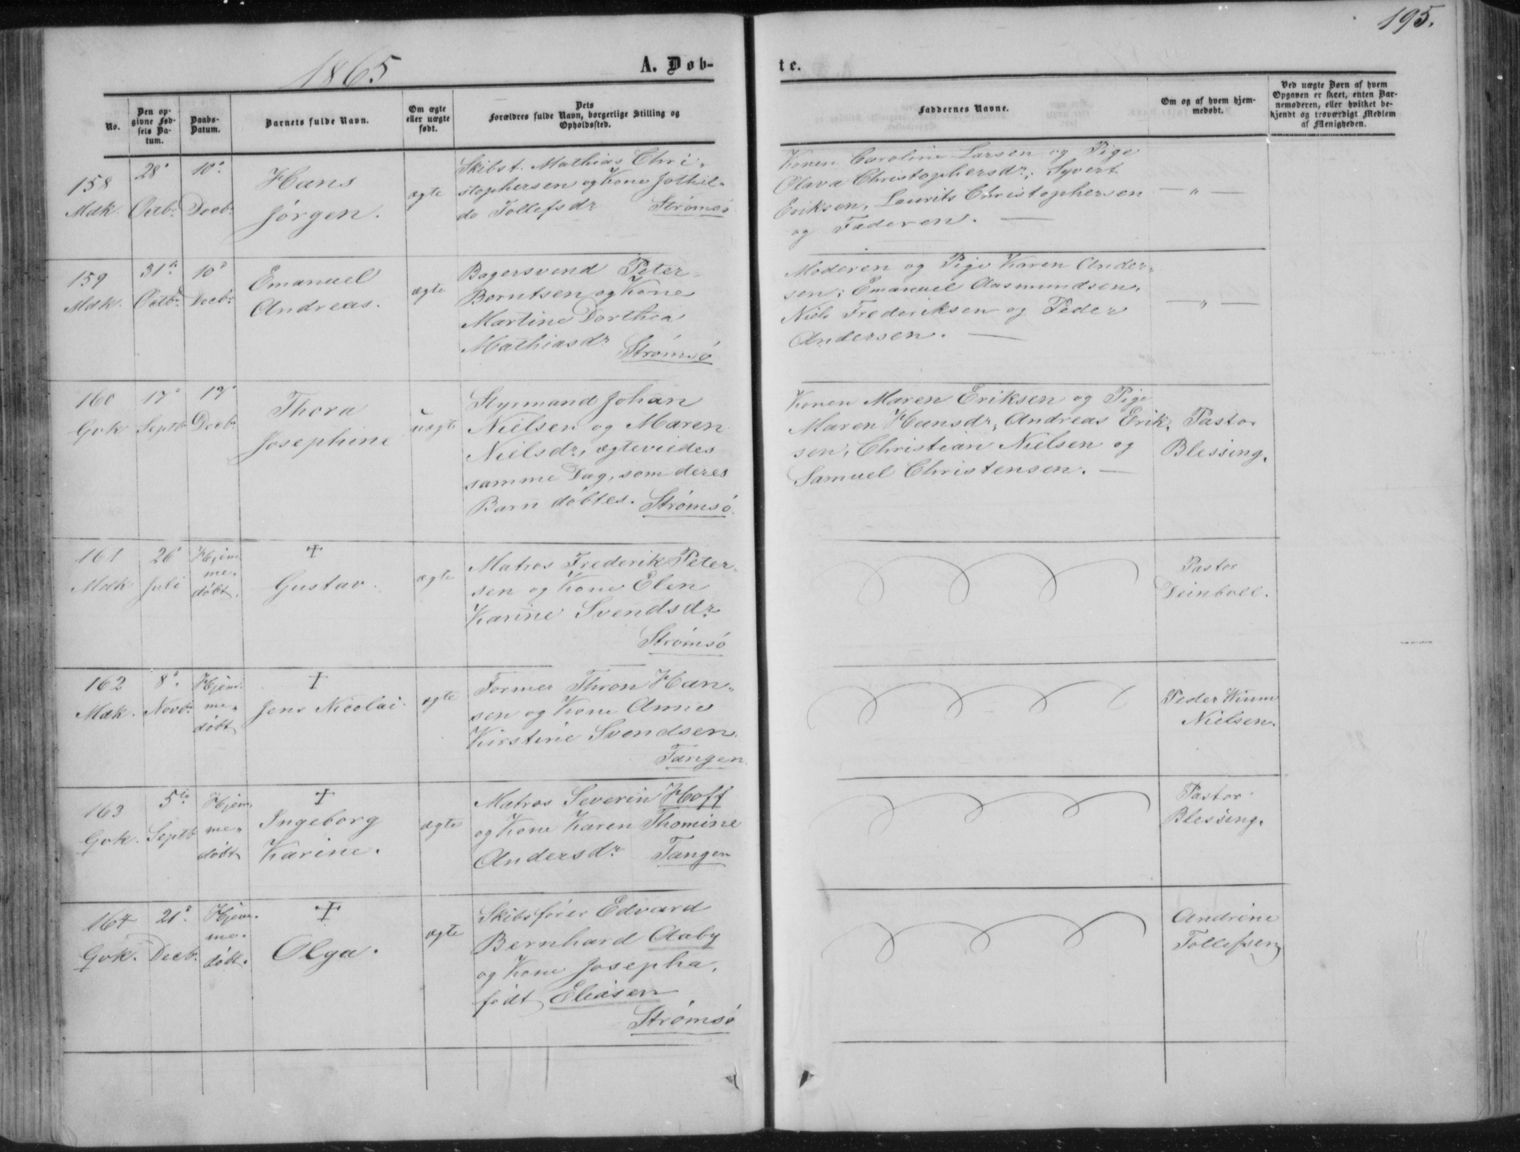 195.
1865
A. Døb-
te.
No.
Den op-
givne Fød-
sels Da-
tum.
Daabs-
Datum.
Barnets fulde Navn.
Om ægte
eller uægte
født.
Dets
Forældres fulde Navn, borgerlige Stilling og
Opholdssted.
Faddernes Navne.
Om og af hvem hjem-
medøbt.
Ved uægte Børn af hvem
Opgaven er skeet, enten Bar-
nemoderen, eller hvilket be-
kjendt og troværdigt Medlem
af Menigheden.
158
Mdk.
28d
Octbr.
10d
Decbr.
Hans
Jørgen.
ægte
Skibst. Mathias Chri-
stophersen og Kone Jothil-
da Tollefsdr Strømsø
Konen Caroline Larsen og Pige
Olava Christophersdr, Syvert
Eriksen, Laurits Christophersen
og Faderen. —
— " —
159
Mdk.
31te
Octbr.
10d
Decbr.
Emanuel
Andreas.
ægte
Bagersvend Peter
Berntsen og Kone
Martine Dorthea
Mathiasdr
Strømsø
Moderen og Pige Karen Ander-
sen; Emanuel Aasmundsen,
Niels Frederiksen og Peder
Andersen. —
— " —
160
Gvk
17d
Septbr
17d
Decbr
Thora
Josephine
uægte
Styrmand Johan
Nielsen og Maren
Nielsdr, ægteviedes
samme Dag, som deres
Barn døbtes. Strømsø.
Konen Maren Eriksen og Pige
Maren Hansdr, Andreas Erik-
sen; Christian Nielsen og
Samuel Christensen. —
Pastor
Blessing.
161
Mdk
26d
Juli
Hjem-
me-
døbt.
+
Gustav.
ægte
Matros Frederik Peter-
sen og Kone Elen
Karine Svendsdr
Strømsø
Pastor
Deinboll.
162
Mdk.
8d.
Novbr.
Hjem-
me-
døbt
+
Jens Nicolai.
ægte
Former Thron Han-
sen og Kone Anne
Kirstine Svendsen.
Tangen
Peder
Nielsen.
163
Gvk.
5te
Septb
Hjem-
me-
døbt
+
Ingeborg
Karine.
ægte
Matros Severin Hoff
og Kone Karen Thomine
Andersdr Tangen
Pastor
Blessing.
164
Gvk.
21d
Decbr.
Hjem-
me-
døbt.
+
Olga.
ægte
Skibsfører Edvard
Bernhard Aaby
og Kone Josepha,
født Eliasen
Strømsø
Andrine
Tollefsen